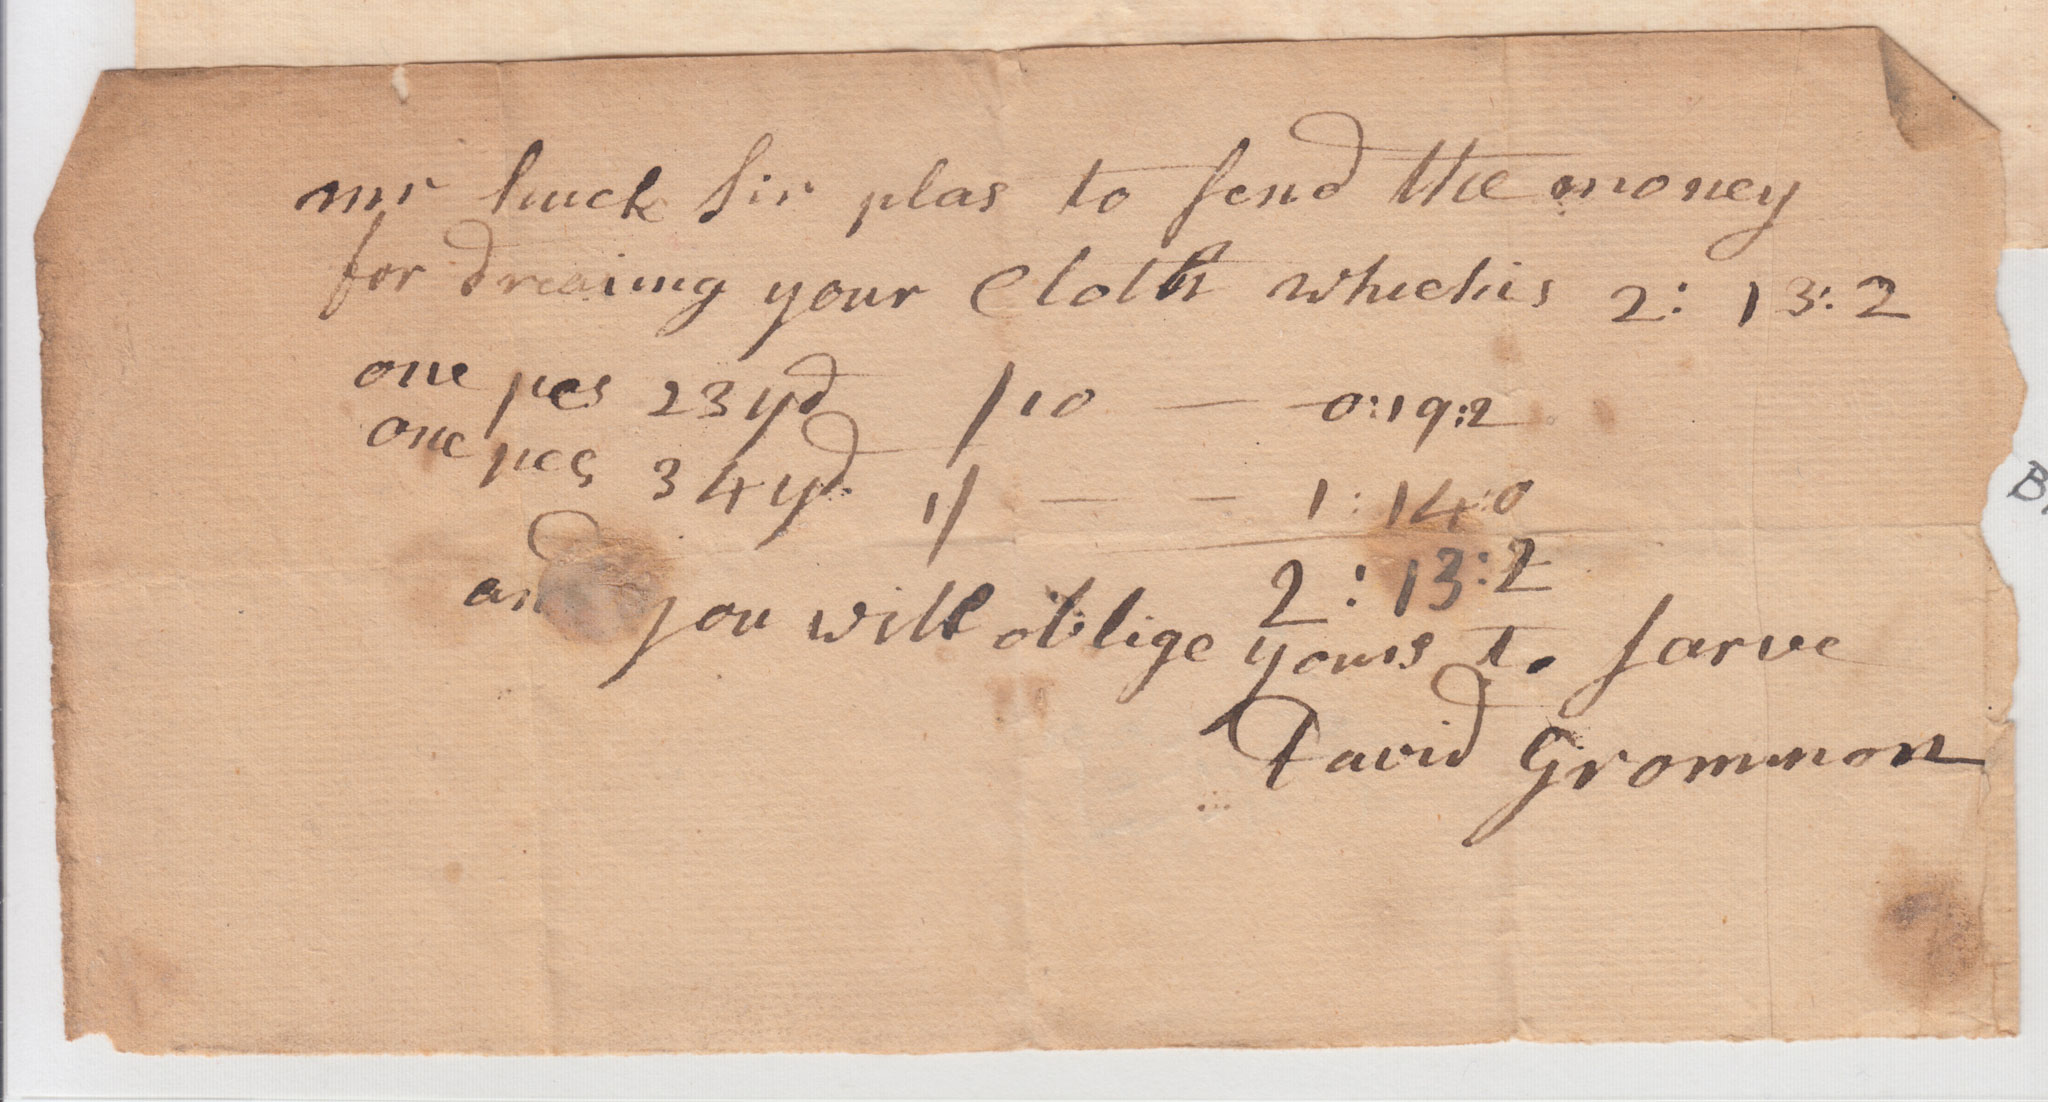 mr luck sir plas to send the money
for dreaing your Cloth whichis 2: 13: 2
one pes 23 yd /10 — — 0:19:2
one pes 34 yd 1/ — — 1:14:0
2:13:2
and you will oblige yours to sarve
David Grommon
B